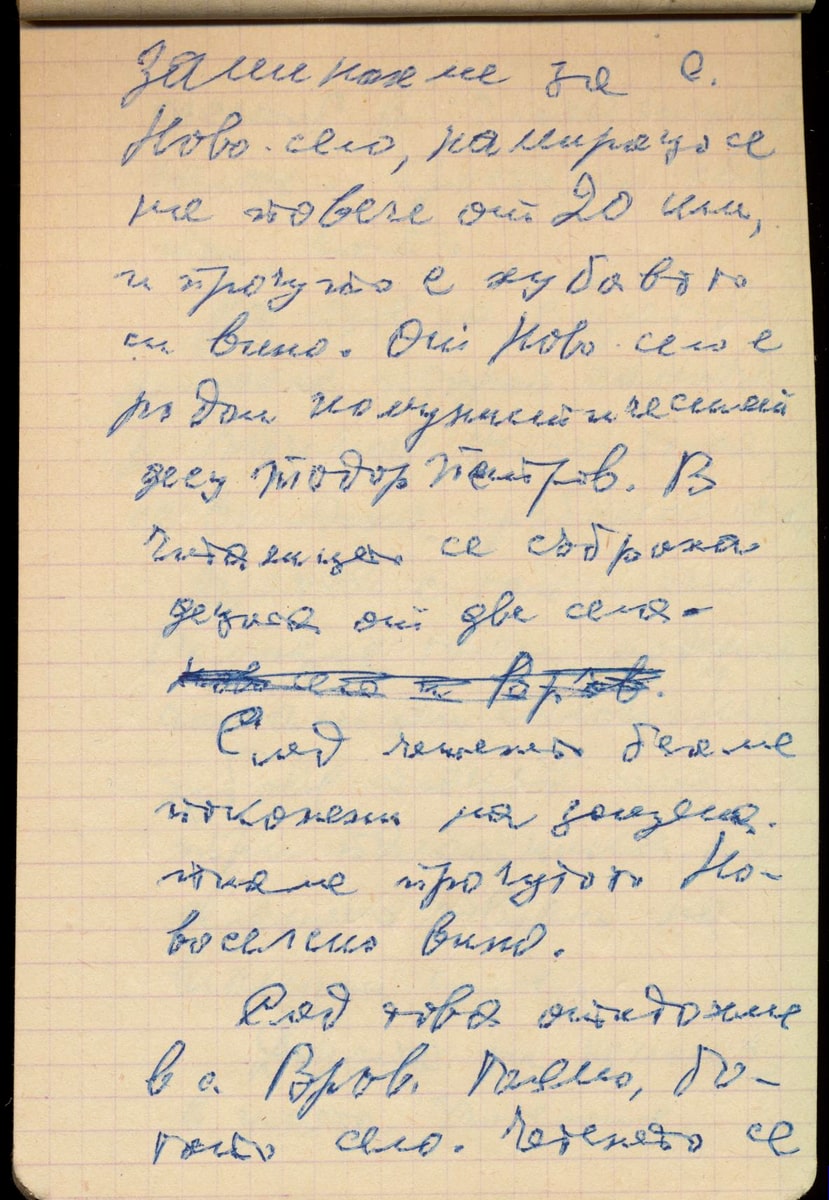 Заминахме за с.
Ново-село, намиращо се
на повече от 20 клм,
и прочуто с хубавото
си вино. От Ново село е
родом комунистическият
деец Тодор Петров. В
читалището се събраха
децата от две села-
Ново село и Връв.
След четенето бяхме
поканени на
прочутото Но-
воселско вино.
След това отидохме
в с. Връв. Голямо, бо-
гато село. Четенето се